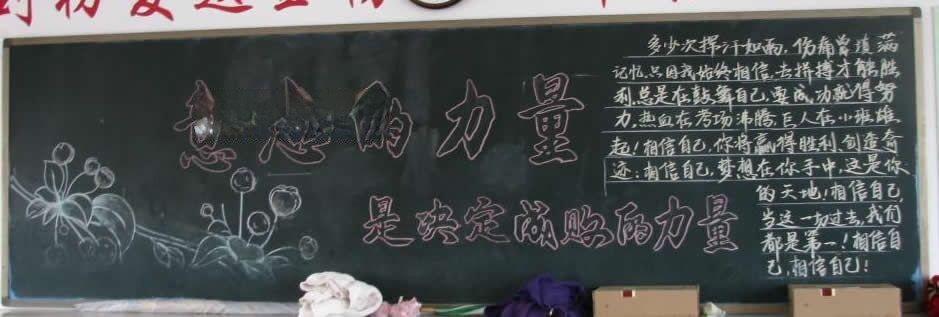 意志的力量
是决定成败的力量
多少次挥汗如雨,伤痛曾填满
记忆只因我始终相信,去拼搏才能胜
利,总是在鼓舞自己,要成功就得努
力,热血在考场沸腾,巨人在小班雄
起!相信自己,你将赢得胜利,创造奇
迹;相信自己,梦想在你手中,这是你
的天地!相信自己,
当这一切过去,我们
都是第一!相信自
己,相信自己!